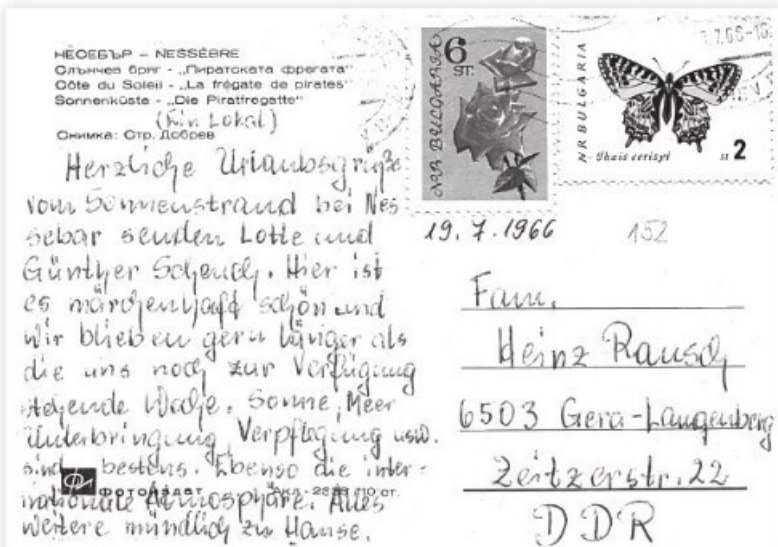 НЕСЕБЪР – NESSÈBRE
Слънчев бряг - „Пиратската фрегата"
Côte du Soleil - „La frégate de pirates"
Sonnenküste - „Die Piratfregatte"
(Ein Lokal)
Снимка: Стр. Добрев
Herzliche Urlaubsgrüße
vom Sonnenstrand bei Nes
sebar senden Lotte und
Günther Schench. Hier ist
es märchenhaft schön und
wir blieben gern länger als
die uns noch zur Verfügung
stehende Woche. Sonne, Meer
Unterbringung, Verpflegung usw.
sind bestens. Ebenso die inter=
nationale Atmosphäre. Alles
weitere mündlich zu Hause.
ФОТОИЗДАТ
10 ст.
6
ST.
NR BULGARIA
NR BULGARIA
Thais cerisyi
ST 2
7.66-10
19. 7. 1966
152
Fam.
Heinz Rausch
6503 Gera-Langenberg
Zeitzerstr. 22
DDR